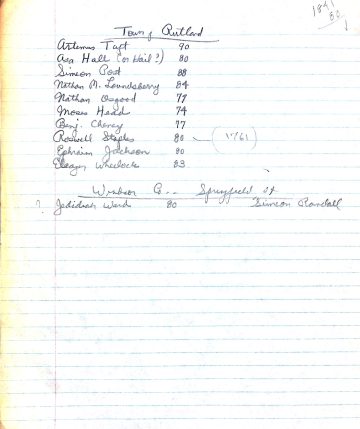 Town of Rutland
Artemas Taft 90
Asa Hall (or Hail?) 80
Simeon Post 88
Nathan M. Lounsberry 84
Nathan Osgood 77
Moses Head 74
Benj. Cheney 77
Roswell Staples 80 (1761)
Ephraim Jackson 80
Eleazer Wheelock 83
Windsor Co. Springfield Vt
? Jedidiah Ward 80 Simeon Randall